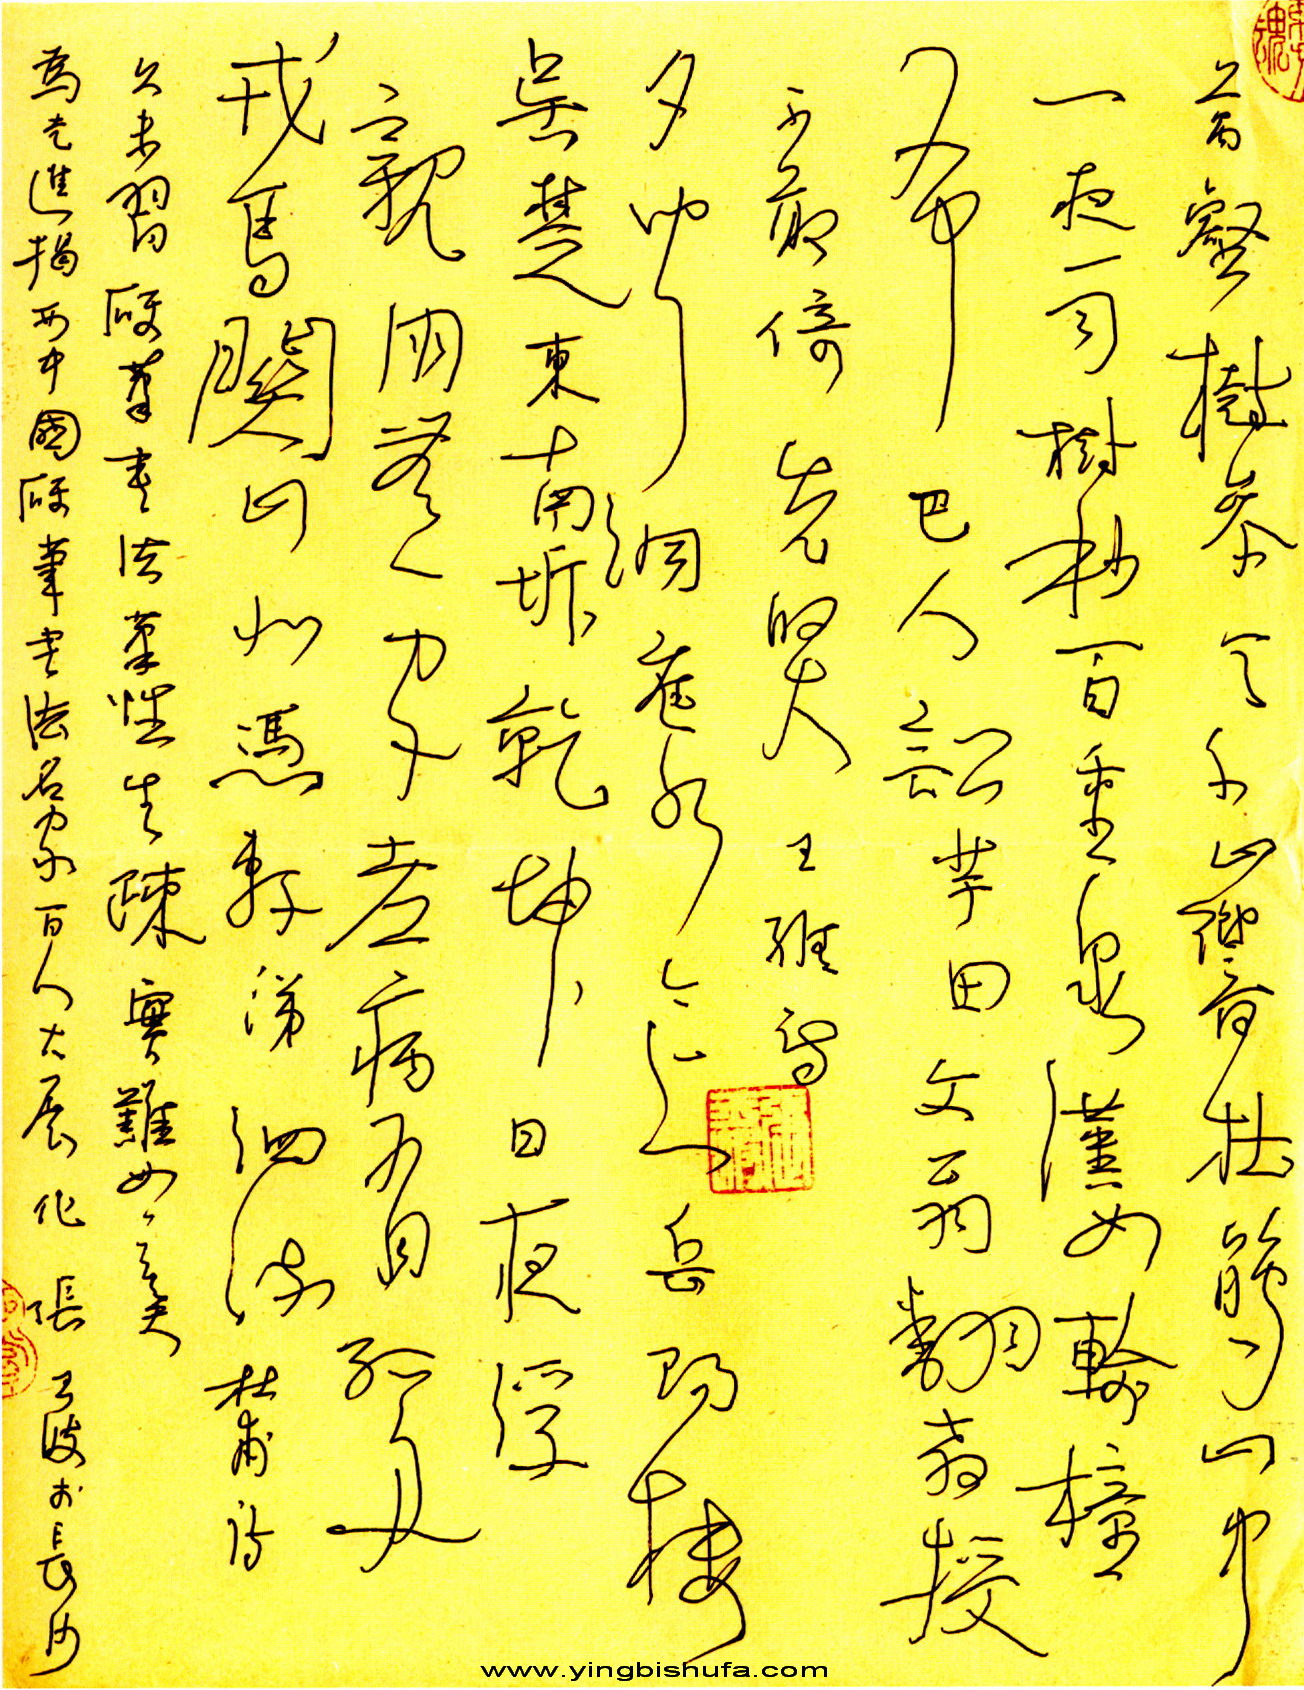 萬壑樹參天千山響杜鵑山中
一夜雨樹杪百重泉漢女輸橦
布巴人訟芋田文翁翻教授
不敢倚先賢 王維詩
昔聞洞庭水今上岳陽樓
吳楚東南坼乾坤日夜浮
親朋無一字老病有孤舟
戎馬關山北憑軒涕泗流 杜甫詩
久未習硬筆書法筆性生疎實難如意矣
為走進揭西中國硬筆書法名家百人大展作 張 波於長沙
www.yingbishufa.com